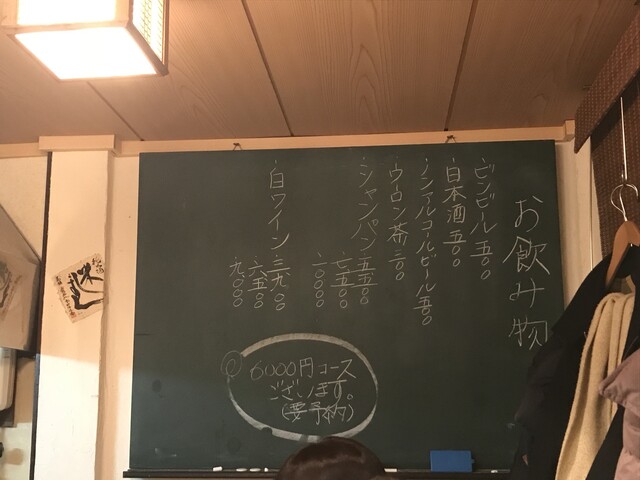 お飲み物
・ビンビール 五〇〇
・日本酒 五〇〇
・ノンアルコールビール 五〇〇
・ウーロン茶 三〇〇
・シャンパン 五五〇〇
七五〇〇
一〇〇〇〇
・白ワイン 三九〇〇
六五〇〇
九〇〇〇
6000円コース
ございます。
(要予約)